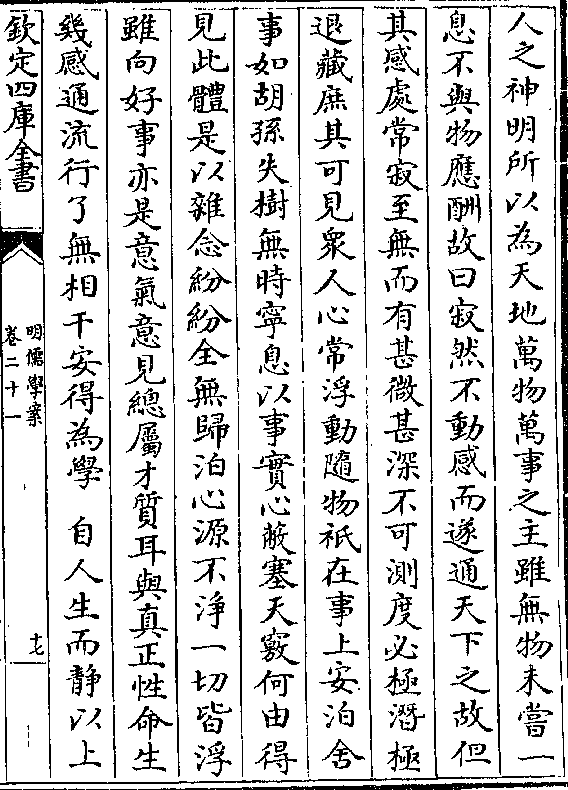 人之神明所以為天地萬物萬事之主雖無物未嘗一
息不與物應酬故曰寂然不動感而遂通天下之故但
其感處常寂至無而有甚微甚深不可測度必極潛極
退藏庶其可見衆人心常浮動隨物祇在事上安泊舍
事如胡孫失樹無時寧息以事實心蔽塞天竅何由得
見此體是以雜念紛紛全無歸泊心源不淨一切皆浮
雖向好事亦是意氣意見總屬才質耳與真正性命生
幾感通流行了無相干安得為學　自人生而靜以上
欽定四庫全書
明儒學案
卷二十一
十七